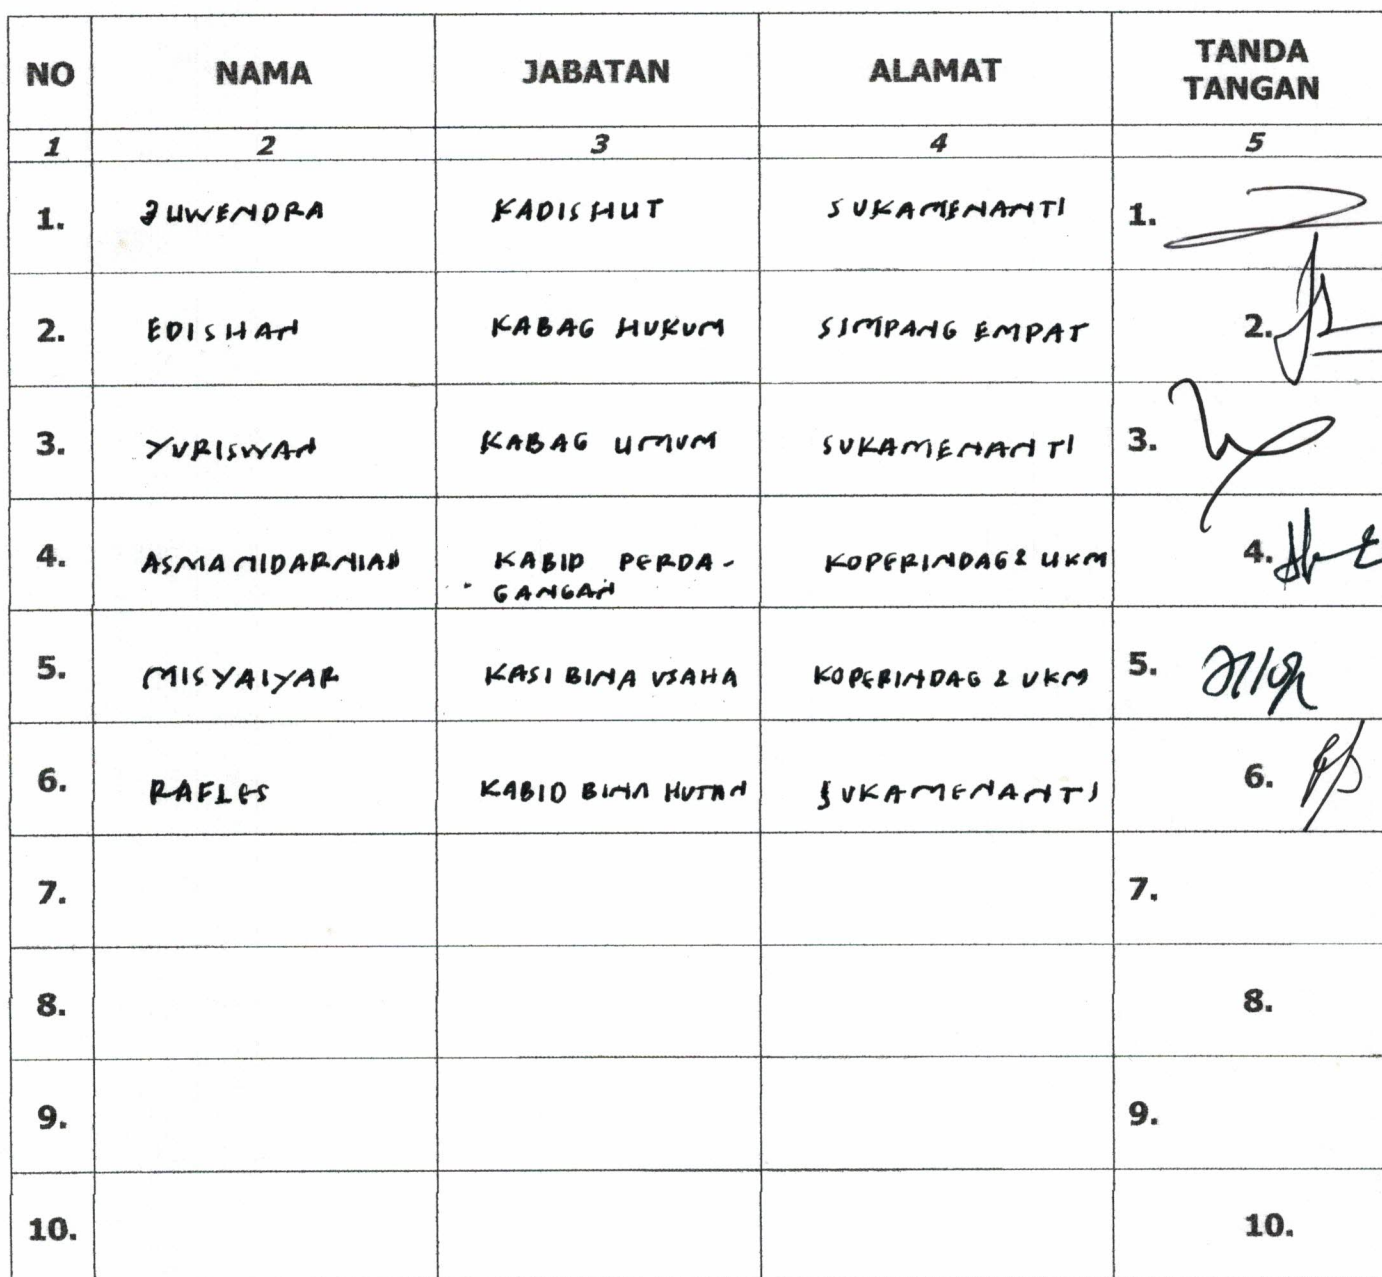 NO NAMA JABATAN ALAMAT TANDA
TANGAN
1 2 3 4 5
1. JUWENDRA KADISHUT SUKAMENANTI 1.
2. EDISHAN KABAG HUKUM SIMPANG EMPAT 2.
3. YURISWAN KABAG UMUM SUKAMENANTI 3.
4. ASMANIDARNIAN KABID PERDA- KOPERINDAG & UKM 4.
GANGAN
5. MISYAIYAR KASI BINA USAHA KOPERINDAG & UKM 5.
6. RAFLES KABID BINA HUTAN SUKAMENANTI 6.
7. 7.
8. 8.
9. 9.
10. 10.